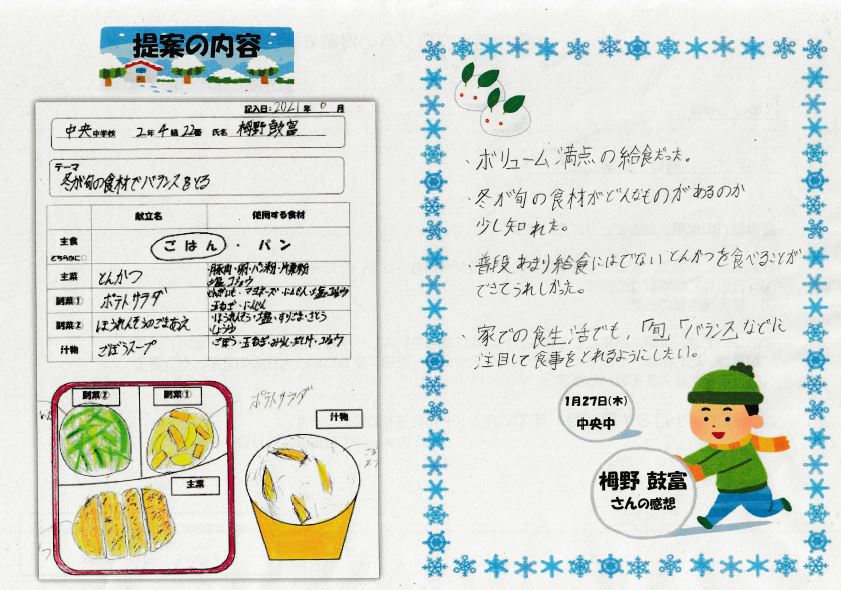 提案の内容
記入日：2021年 6 月
中央中学校 2年 4 組 22番 氏名 栂野 鼓富
テーマ
冬が旬の食材でバランスをとる
献立名 使用する食材
主食
どちらかに○
ごはん ・ パン
主菜 とんかつ ・豚肉・卵・パン粉・片栗粉
・塩・コショウ
副菜① ポテトサラダ マヨネーズ・にんじん・塩・コショウ
玉ねぎ・にんじん
副菜② ほうれんそうのごまあえ ・ほうれんそう・塩・すりごま・さとう
・しょうゆ
汁物 ごぼうスープ ・ごぼう・玉ねぎ・みりん・だし汁・コショウ
副菜② 副菜① ポテトサラダ
汁物
主菜
・ボリューム満点の給食だった。
・冬が旬の食材がどんなものがあるのか
少し知れた。
・普段あまり給食にはでないとんかつを食べることが
できてうれしかった。
・家での食生活でも、「旬」「バランス」などに
注目して食事をとれるようにしたい。
1月27日(木)
中央中
栂野 鼓富
さんの感想